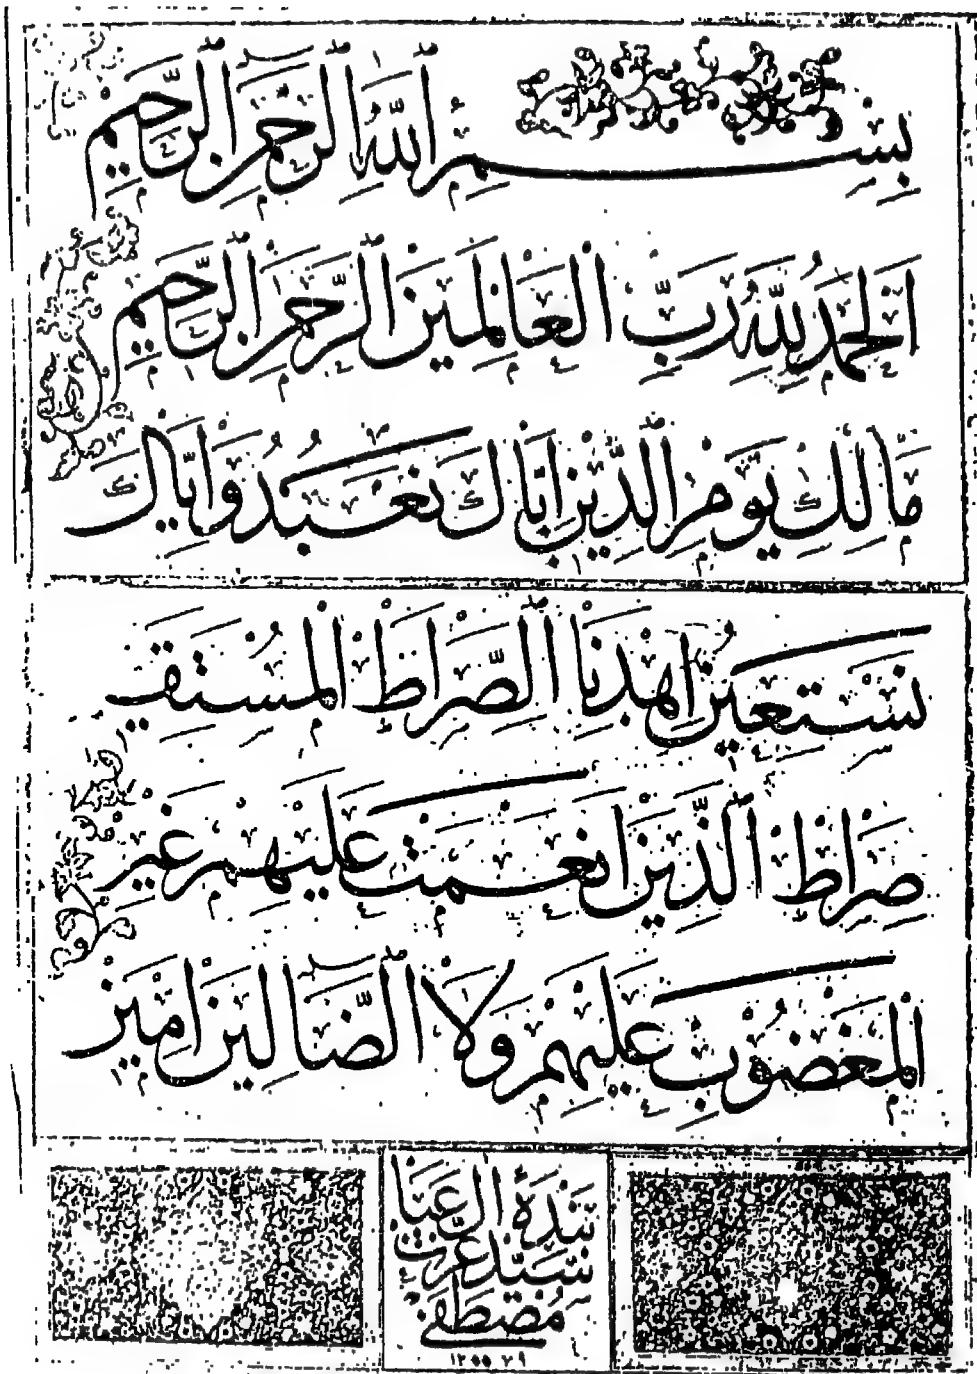 بِسْمِ اللهِ الرَّحْمٰنِ الرَّحِيمِ
اَلْحَمْدُ لِلّٰهِ رَبِّ الْعَالَمِينَ الرَّحْمٰنِ الرَّحِيمِ
مَالِكِ يَوْمِ الدِّينِ اِيَّاكَ نَعْبُدُ وَاِيَّاكَ
نَسْتَعِينُ اِهْدِنَا الصِّرَاطَ الْمُسْتَقِيمَ
صِرَاطَ الَّذِينَ اَنْعَمْتَ عَلَيْهِمْ غَيْرِ
الْمَغْضُوبِ عَلَيْهِمْ وَلَا الضَّالِّينَ اٰمِينَ
بنده
سيد عزت
مصطفى